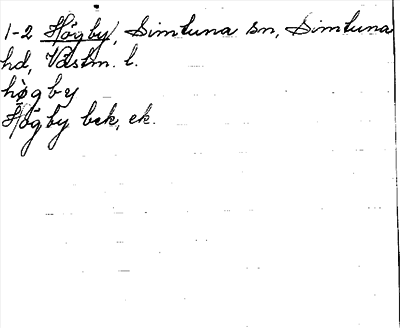 1-2 Högby, Simtuna sn, Simtuna
hd, Västm. l.
hø̀gby
Högby bck, ek.